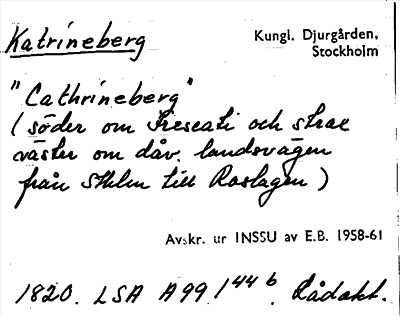 Katrineberg
Kungl. Djurgården,
Stockholm
"Cathrineberg"
(söder om Frescati och strax
väster om dåv. landsvägen
från Sthlm till Roslagen)
Avskr. ur INSSU av E.B. 1958-61
1820. LSA A99/44 b. Rådakt.